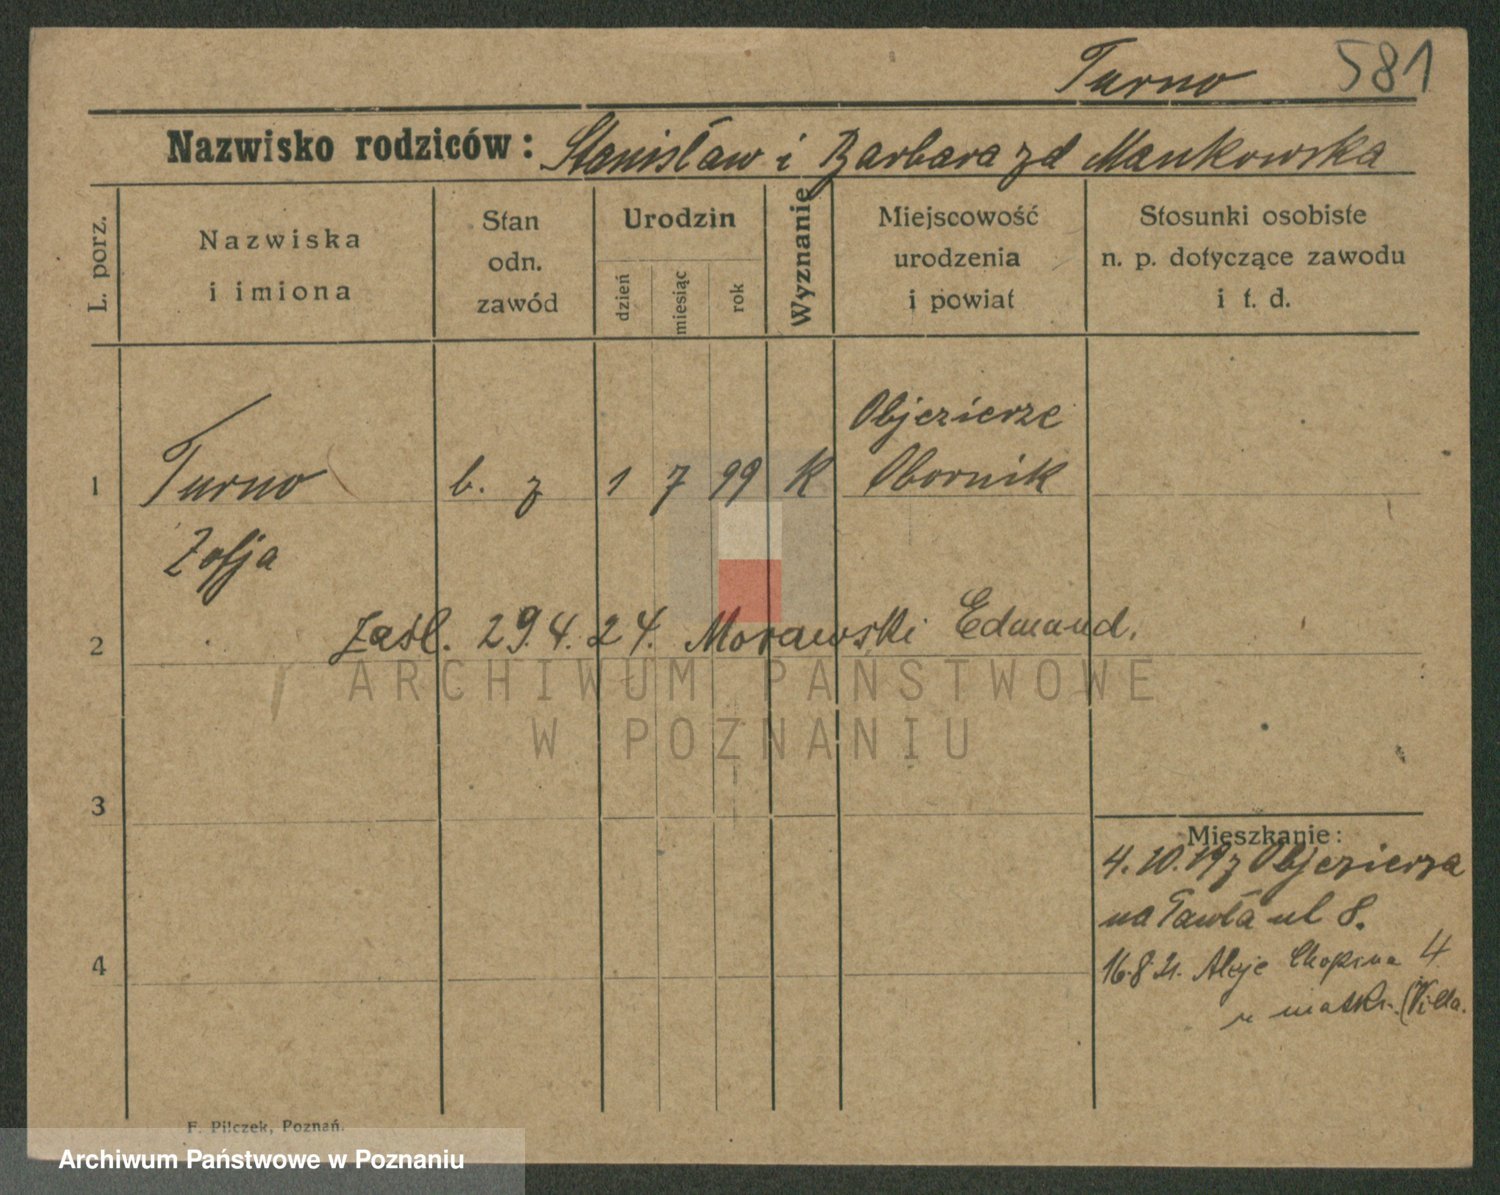 Turno 581
Nazwisko rodziców: Stanisław i Barbara zd Mankowska
L. porz.
Nazwiska
i imiona
Stan
odn.
zawód
Urodzin
dzień
miesiąc
rok
Wyznanie
Miejscowość
urodzenia
i powiat
Stosunki osobiste
n. p. dotyczące zawodu
i t. d.
1 Turno b. z 1 7 99 K Objezierze
Obornik
Zofja
2 Zaśl. 29.4.24. Morawski Edmund.
3
4
Mieszkanie:
4.10.19 z Objezierza
na Pawła ul 8.
16.8.21. Aleje Chopina 4
u matki. (Villa.
F. Pilczek, Poznań.
ARCHIWUM PAŃSTWOWE
W POZNANIU
Archiwum Państwowe w Poznaniu